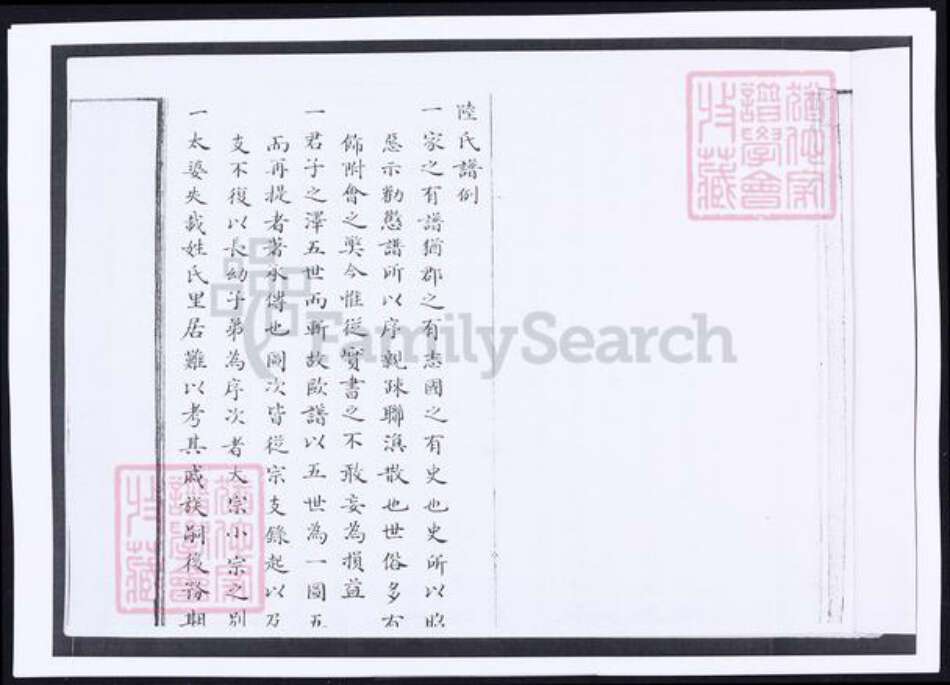 陸氏譜例
一家之有譜猶郡之有志國之有史也史所以昭
惡示勸懲譜所以序親疎聯渙散也世俗多
飾附會之獘今惟從實書之不敢妄為損益
一君子之澤五世而斬故歐譜以五世為一圖五
而再提者著承傳也圖次皆從宗支錄起以及
支不復以長幼子弟為序次者大宗小宗之別
一太婆失載姓氏里居難以考其戚族嗣後務期
FamilySearch
譜學會
收藏
譜學會
收藏